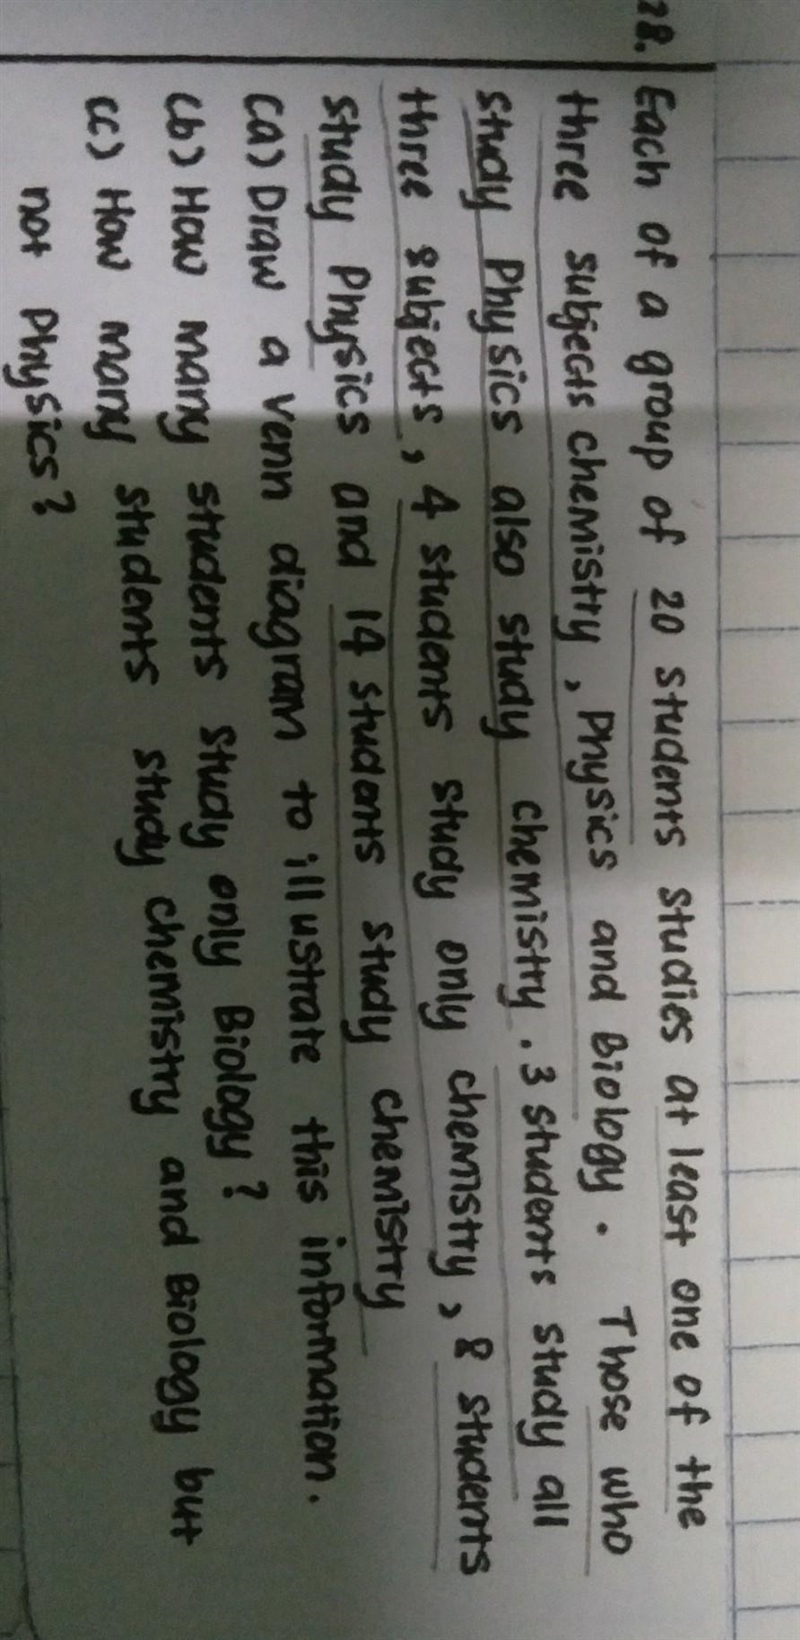 28. Each of a group of 20 students studies at least one of the
three subjects chemistry, Physics and Biology. Those who
study Physics also study chemistry. 3 students study all
three subjects, 4 students study only chemistry, 8 students
study Physics and 14 students study chemistry
(a) Draw a venn diagram to illustrate this information.
(b) How many students study only Biology?
(c) How many students study chemistry and Biology but
not Physics?